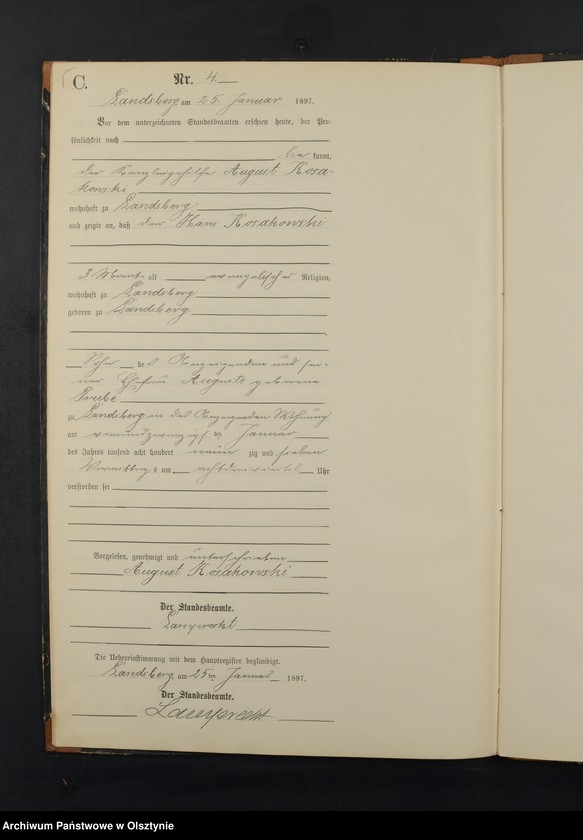 C.
Nr. 4.
Landsberg, am 25. Januar 1897.
Vor dem unterzeichneten Standesbeamten erschien heute, der Per-
sönlichkeit nach
be kannt,
der Kanzleigehilfe August Kosa-
kowski
wohnhaft zu Landsberg
und zeigte an, daß der Hans Kosakowski
3 Monate alt evangelischer Religion,
wohnhaft zu Landsberg
geboren zu Landsberg
Sohn des Anzeigenden und sei-
ner Ehefrau Auguste geborene
zu Landsberg in des Anzeigenden Wohnung
am vierundzwanzigsten Januar
des Jahres tausend acht hundert neun zig und sieben
Vormittags um achtdreiviertel Uhr
verstorben sei
Vorgelesen, genehmigt und unterschrieben
August Kosakowski
Der Standesbeamte.
Lamprecht
Die Uebereinstimmung mit dem Hauptregister beglaubigt.
Landsberg, am 25ten Januar 1897.
Der Standesbeamte.
Lamprecht
Archiwum Państwowe w Olsztynie